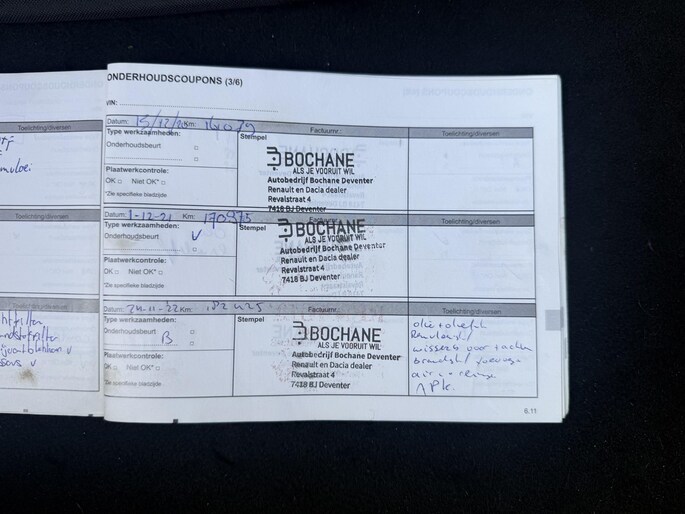 ONDERHOUDSCOUPONS (3/6)
VIN:
Toelichting/diversen
Datum: 15/12/20 Km: Factuurnr.: Toelichting/diversen
Type werkzaamheden: Stempel
Onderhoudsbeurt
BOCHANE
ALS JE VOORUIT WIL
Autobedrijf Bochane Deventer
Renault en Dacia dealer
Revalstraat 4
7418 BJ Deventer
Plaatwerkcontrole:
OK Niet OK*
*Zie specifieke bladzijde
Toelichting/diversen
Datum: 1-12-21 Km: 170975 Factuurnr.: Toelichting/diversen
Type werkzaamheden: Stempel
Onderhoudsbeurt V
BOCHANE
ALS JE VOORUIT WIL
Autobedrijf Bochane Deventer
Renault en Dacia dealer
Revalstraat 4
7418 BJ Deventer
Plaatwerkcontrole:
OK Niet OK*
*Zie specifieke bladzijde
Toelichting/diversen
Datum: 24-11-22 Km: 182425 Factuurnr.: Toelichting/diversen
Type werkzaamheden: Stempel
Onderhoudsbeurt
B
BOCHANE
ALS JE VOORUIT WIL
Autobedrijf Bochane Deventer
Renault en Dacia dealer
Revalstraat 4
7418 BJ Deventer
Plaatwerkcontrole:
OK Niet OK*
*Zie specifieke bladzijde
olie + oliefilt
Remvloeist
wissers voor + achter
APK.
6.11